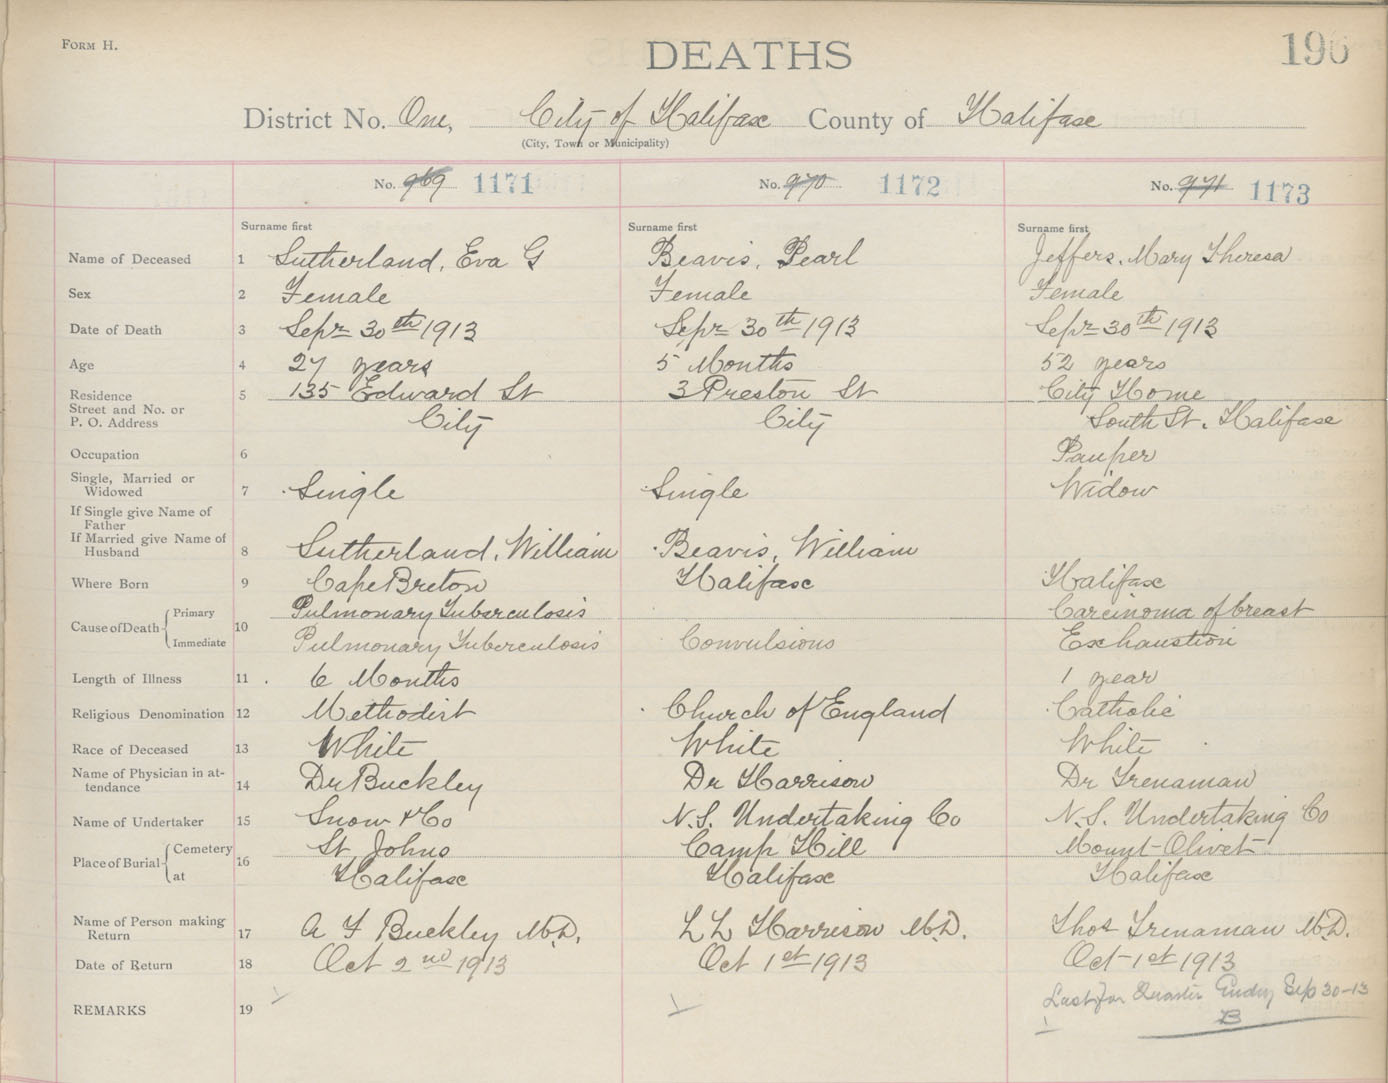 FORM H.
DEATHS
196
District No. One, City of Halifax County of Halifax
(City, Town or Municipality)
No. 969 1171 No. 970 1172 No. 971 1173
Surname first Surname first Surname first
Name of Deceased 1 Sutherland, Eva G Beavis, Pearl Jeffers, Mary Theresa
Sex 2 Female Female Female
Date of Death 3 Sepr 30th 1913 Sepr 30th 1913 Sepr 30th 1913
Age 4 27 years 5 Months 52 years
Residence 5 135 Edward St 3 Preston St City Home
Street and No. or
P. O. Address City City South St. Halifax
Occupation 6 Pauper
Single, Married or
Widowed 7 Single Single Widow
If Single give Name of
Father
If Married give Name of
Husband 8 Sutherland, William Beavis, William
Where Born 9 Cape Breton Halifax Halifax
Cause of Death 10 Primary Pulmonary Tuberculosis Carcinoma of breast
Immediate Pulmonary Tuberculosis Convulsions Exhaustion
Length of Illness 11 6 Months 1 year
Religious Denomination 12 Methodist Church of England Catholic
Race of Deceased 13 White White White
Name of Physician in at-
tendance 14 Dr Buckley Dr Harrison Dr Trenaman
Name of Undertaker 15 Snow & Co N.S. Undertaking Co N.S. Undertaking Co
Place of Burial 16 Cemetery St Johns Camp Hill Mount Olivet
at Halifax Halifax Halifax
Name of Person making
Return 17 A F Buckley M.D. L L Harrison M.D. Thos Trenaman M.D.
Date of Return 18 Oct 2nd 1913 Oct 1st 1913 Oct 1st 1913
Last for Quarter Ending Sep 30-13
REMARKS 19 B